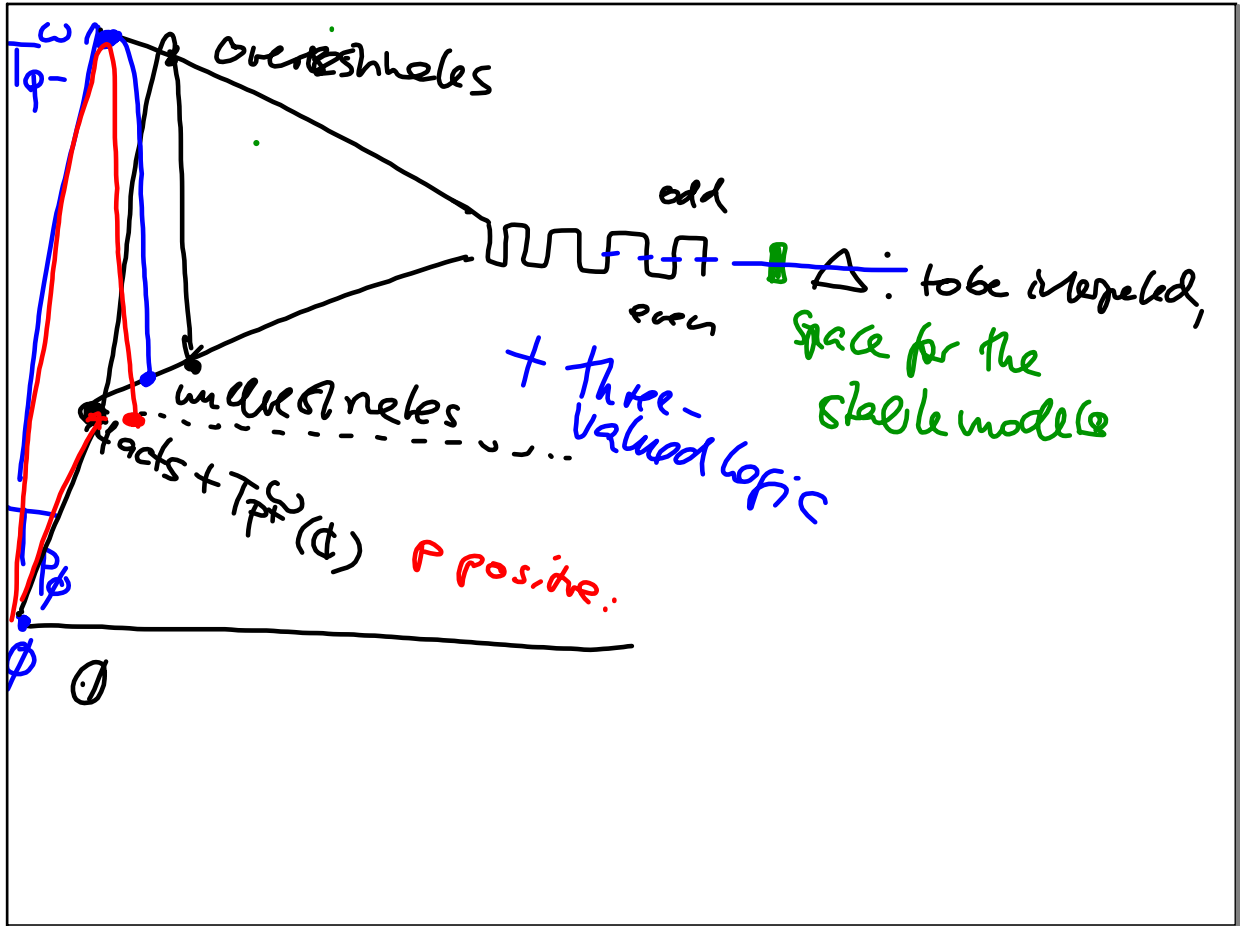 ω
Tφ-
overestimates
odd
even
Δ: to be interpreted,
space for the
stable models
+ three-
valued logic
underestimates
facts + T ω P+ (∅)
P positive.
P∅
∅
∅